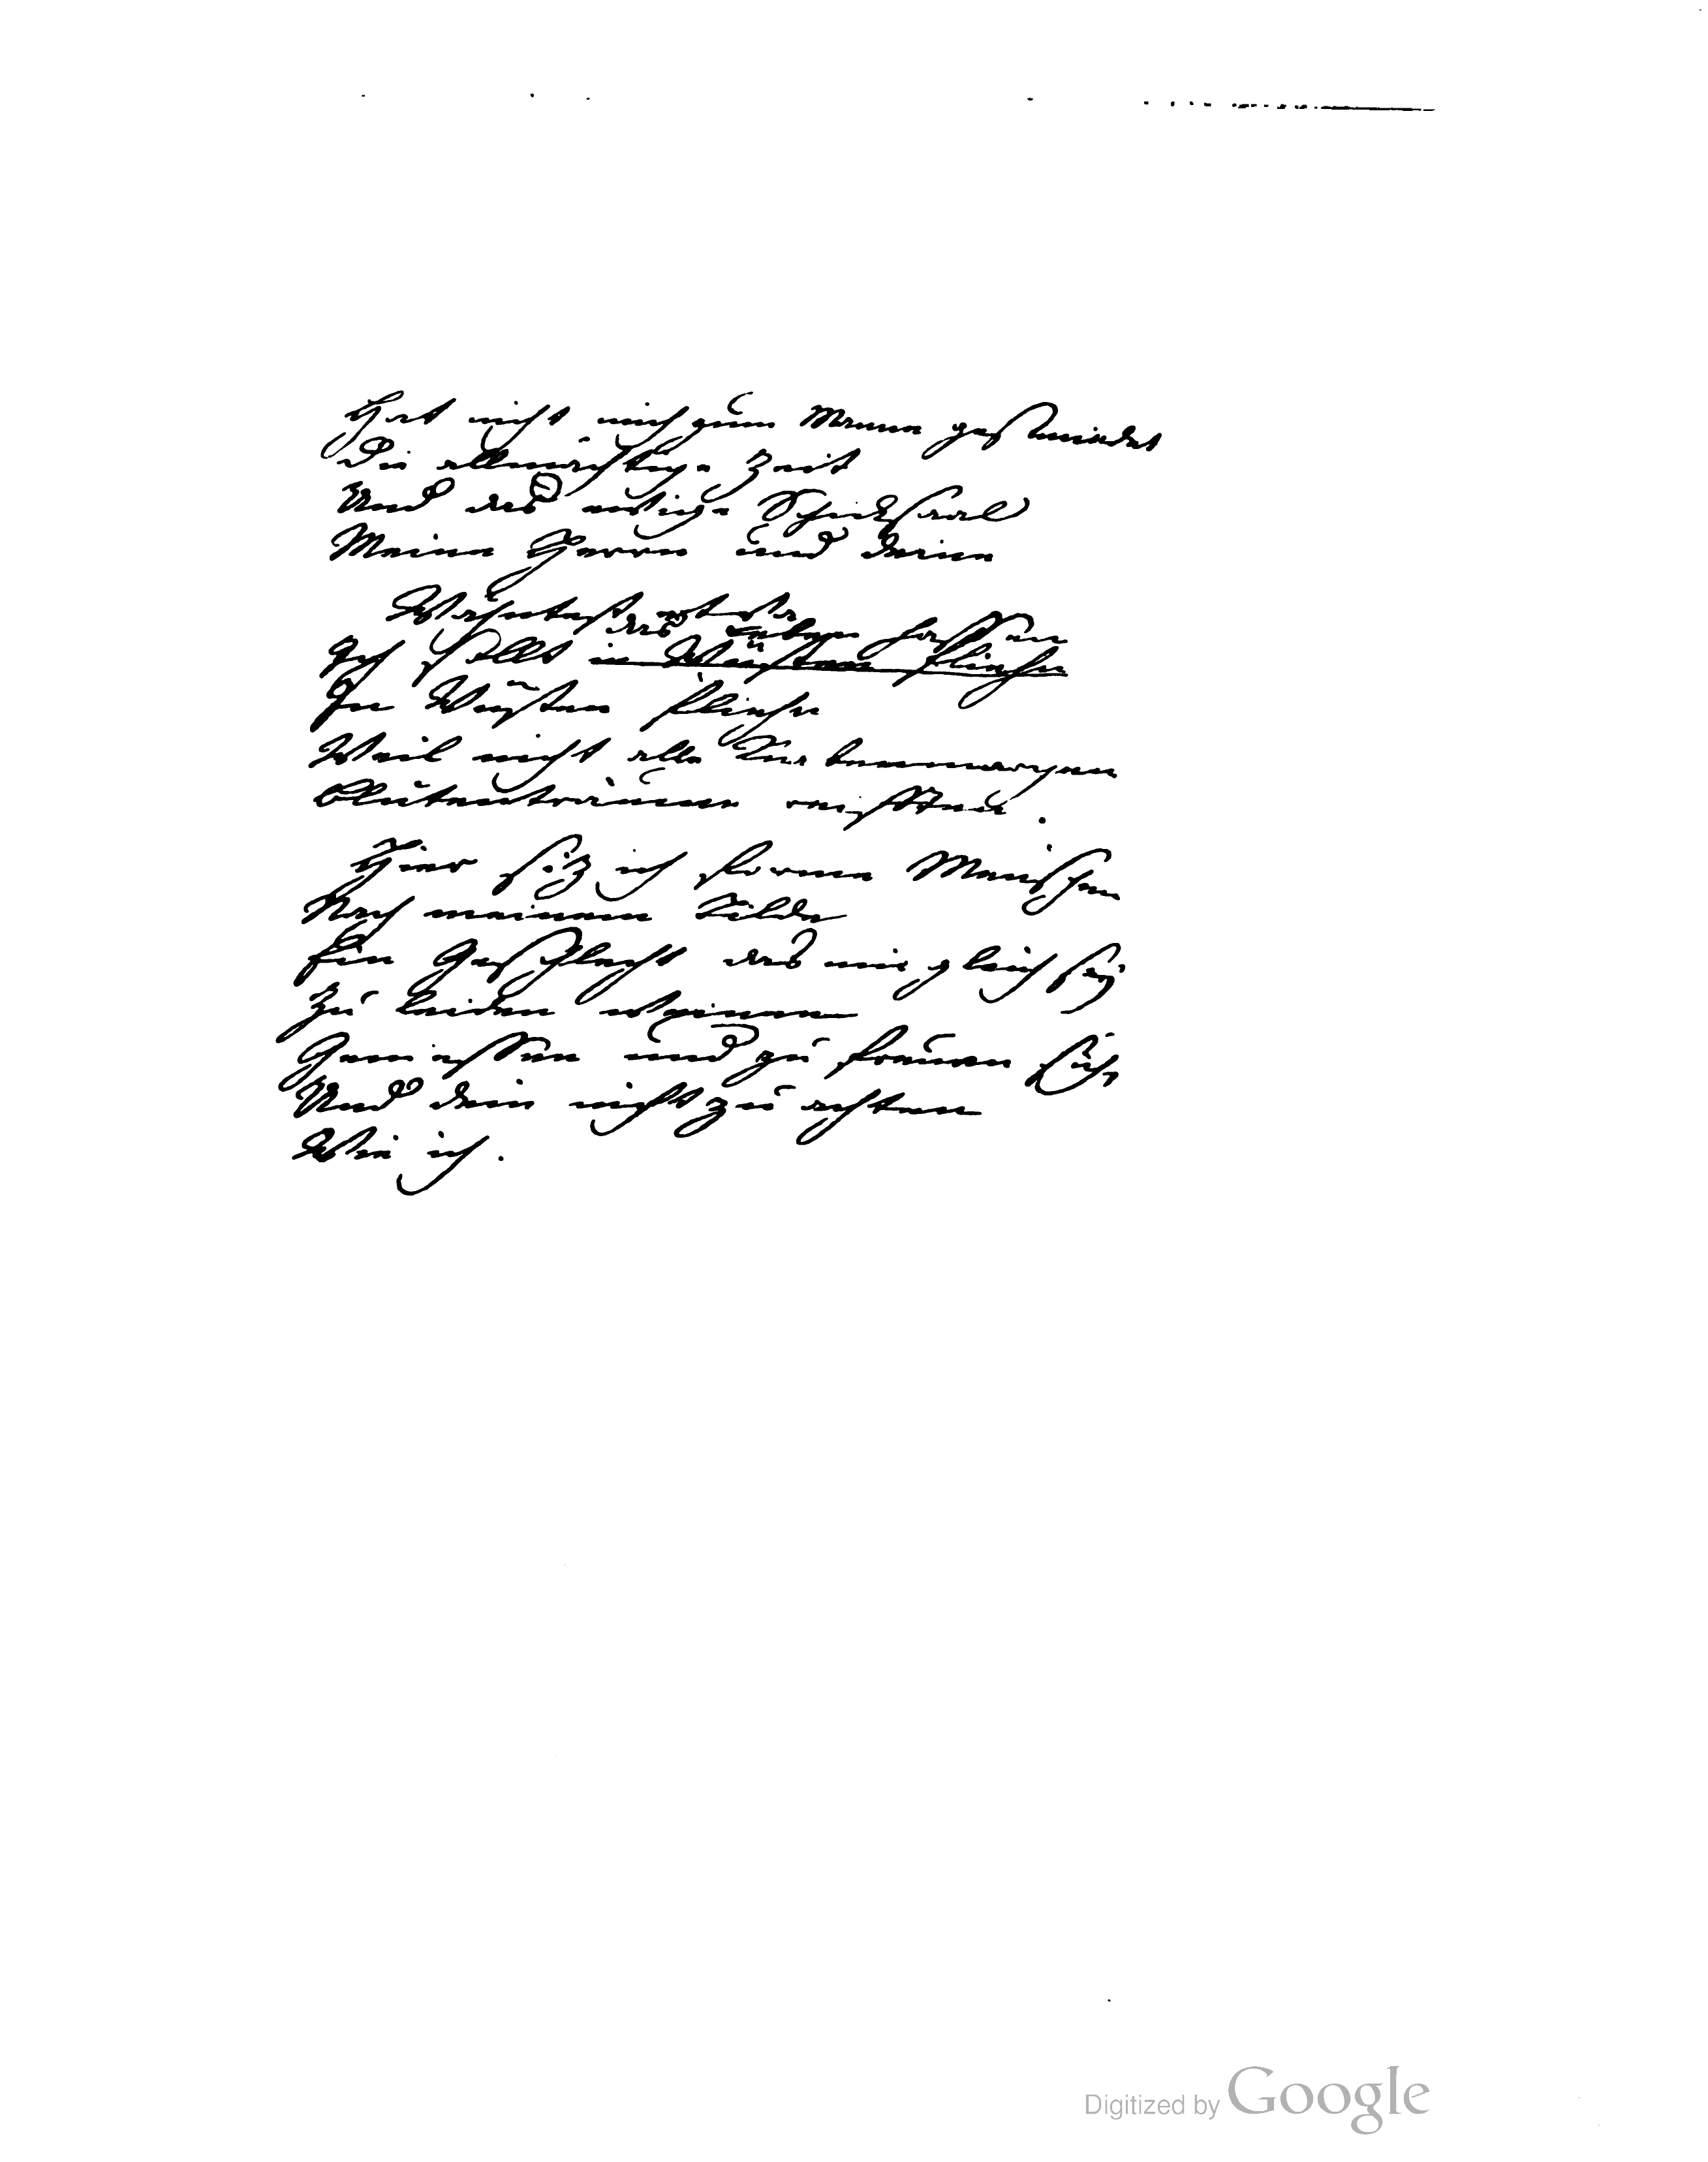 Hat nicht mich zum Manne geschmiedet
Die allmächtige Zeit
Und das ewige Schicksaal
Meine Herrn und deine
Wähntest etwa
das Leben hassen
Ich sollt in Wüsten fliehn
In Wüsten fliehn
Weil nicht alle Knabenmorgen
Blütenträume reifften.
Hier sitz ich forme Menschen
Nach meinem Bilde
Ein Geschlecht das mir gleich sey
Zu leiden weinen
Geniessen und zu freuen sich,
Und dein nicht zu achten
Wie ich.
Digitized by Google